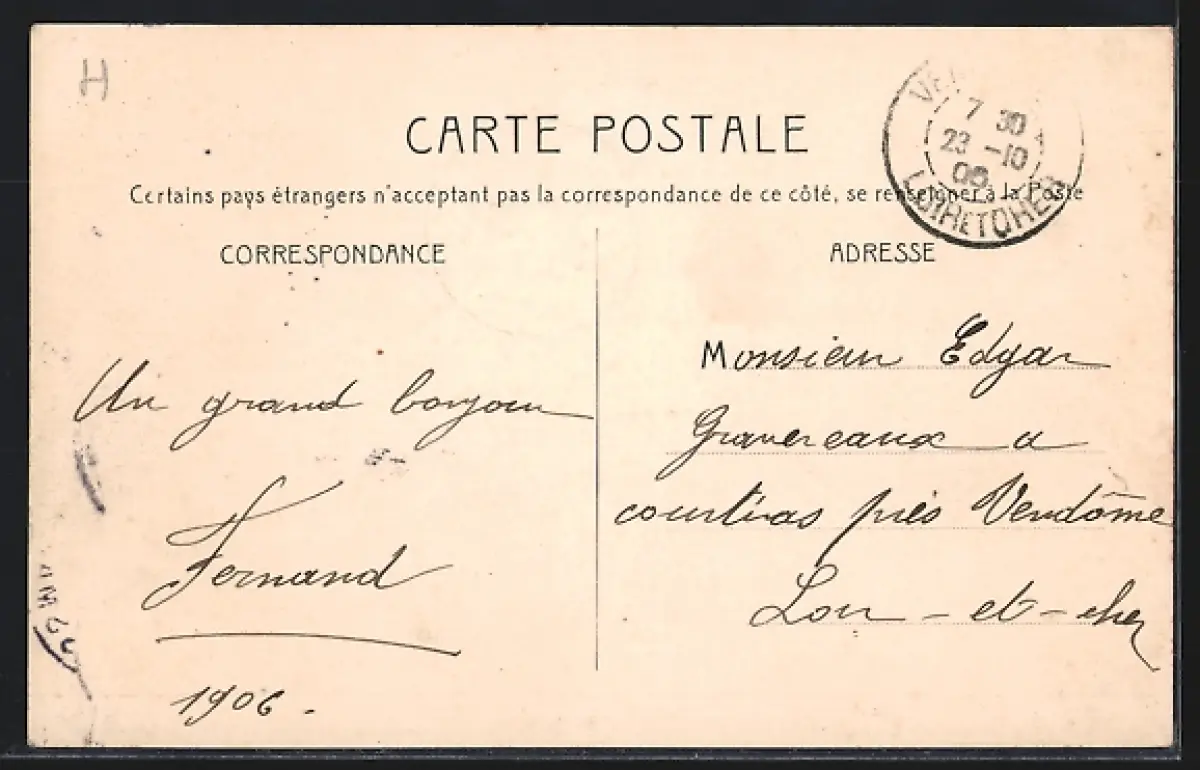 H
CARTE POSTALE
7 30
23 -10
LOIR ET CHER
Certains pays étrangers n'acceptant pas la correspondance de ce côté, se renseigner à la Poste
CORRESPONDANCE
Un grand bonjour
Fernand
1906.
ADRESSE
Monsieur Edgar
Gravereaux a
courtiras près Vendôme
Loir-et-cher